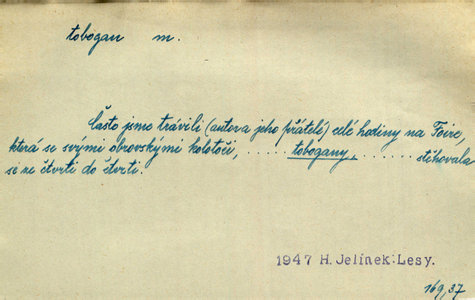 tobogan m.
Často jsme trávili (autor a jeho přátelé) celé hodiny na Foire,
která se svými obrovskými kolotoči, ...... tobogany, ....... stěhovala
se ze čtvrti do čtvrti.
1947 H. Jelínek: Lesy.
169, 37